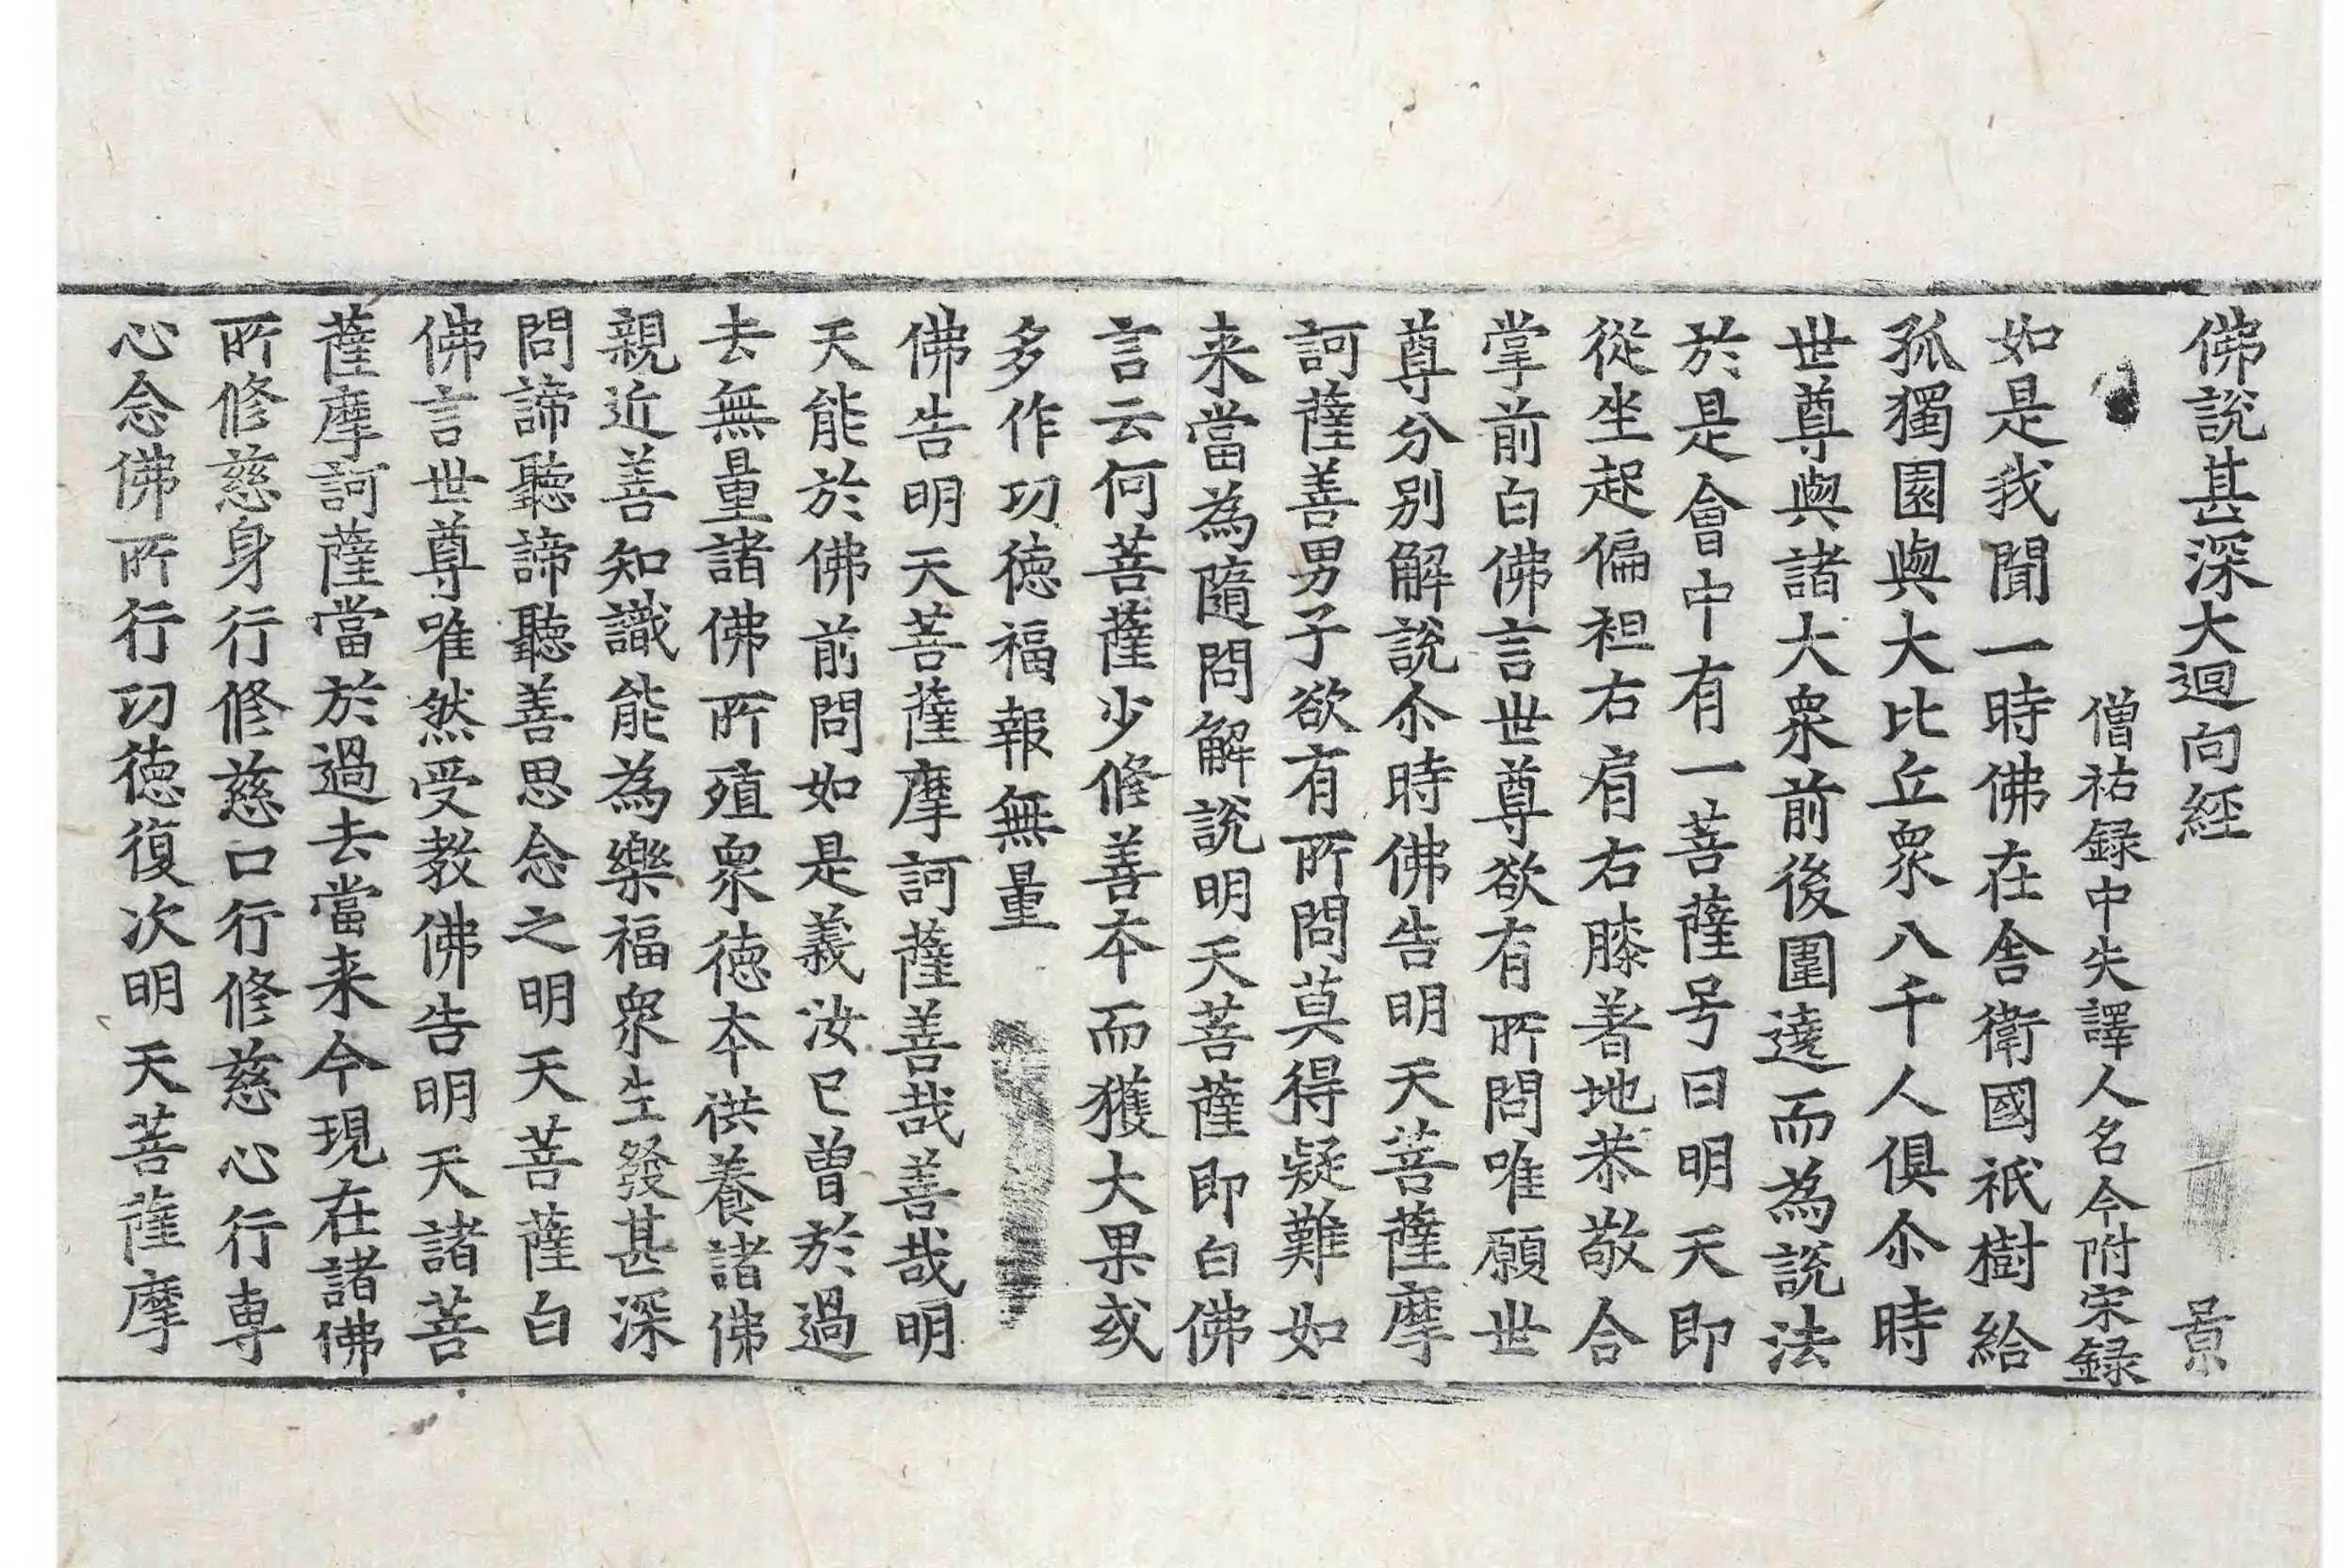 佛說甚深大迴向經 景
僧祐録中失譯人名今附宋録
如是我聞一時佛在舍衛國祇樹給
孤獨園與大比丘衆八千人俱尒時
世尊與諸大衆前後圍遶而為說法
於是會中有一菩薩号曰明天即
從坐起偏袒右肩右膝著地恭敬合
掌前白佛言世尊欲有所問唯願世
尊分別解說尒時佛告明天菩薩摩
訶薩善男子欲有所問莫得疑難如
来當為隨問解說明天菩薩即白佛
言云何菩薩少修善本而獲大果或
多作功德福報無量
佛告明天菩薩摩訶薩善哉善哉明
天能於佛前問如是義汝已曾於過
去無量諸佛所殖衆德本供養諸佛
親近善知識能為樂福衆生發甚深
問諦聽諦聽善思念之明天菩薩白
佛言世尊唯然受教佛告明天諸菩
薩摩訶薩當於過去當来今現在諸佛
所修慈身行修慈口行修慈心行専
心念佛所行功德復次明天菩薩摩